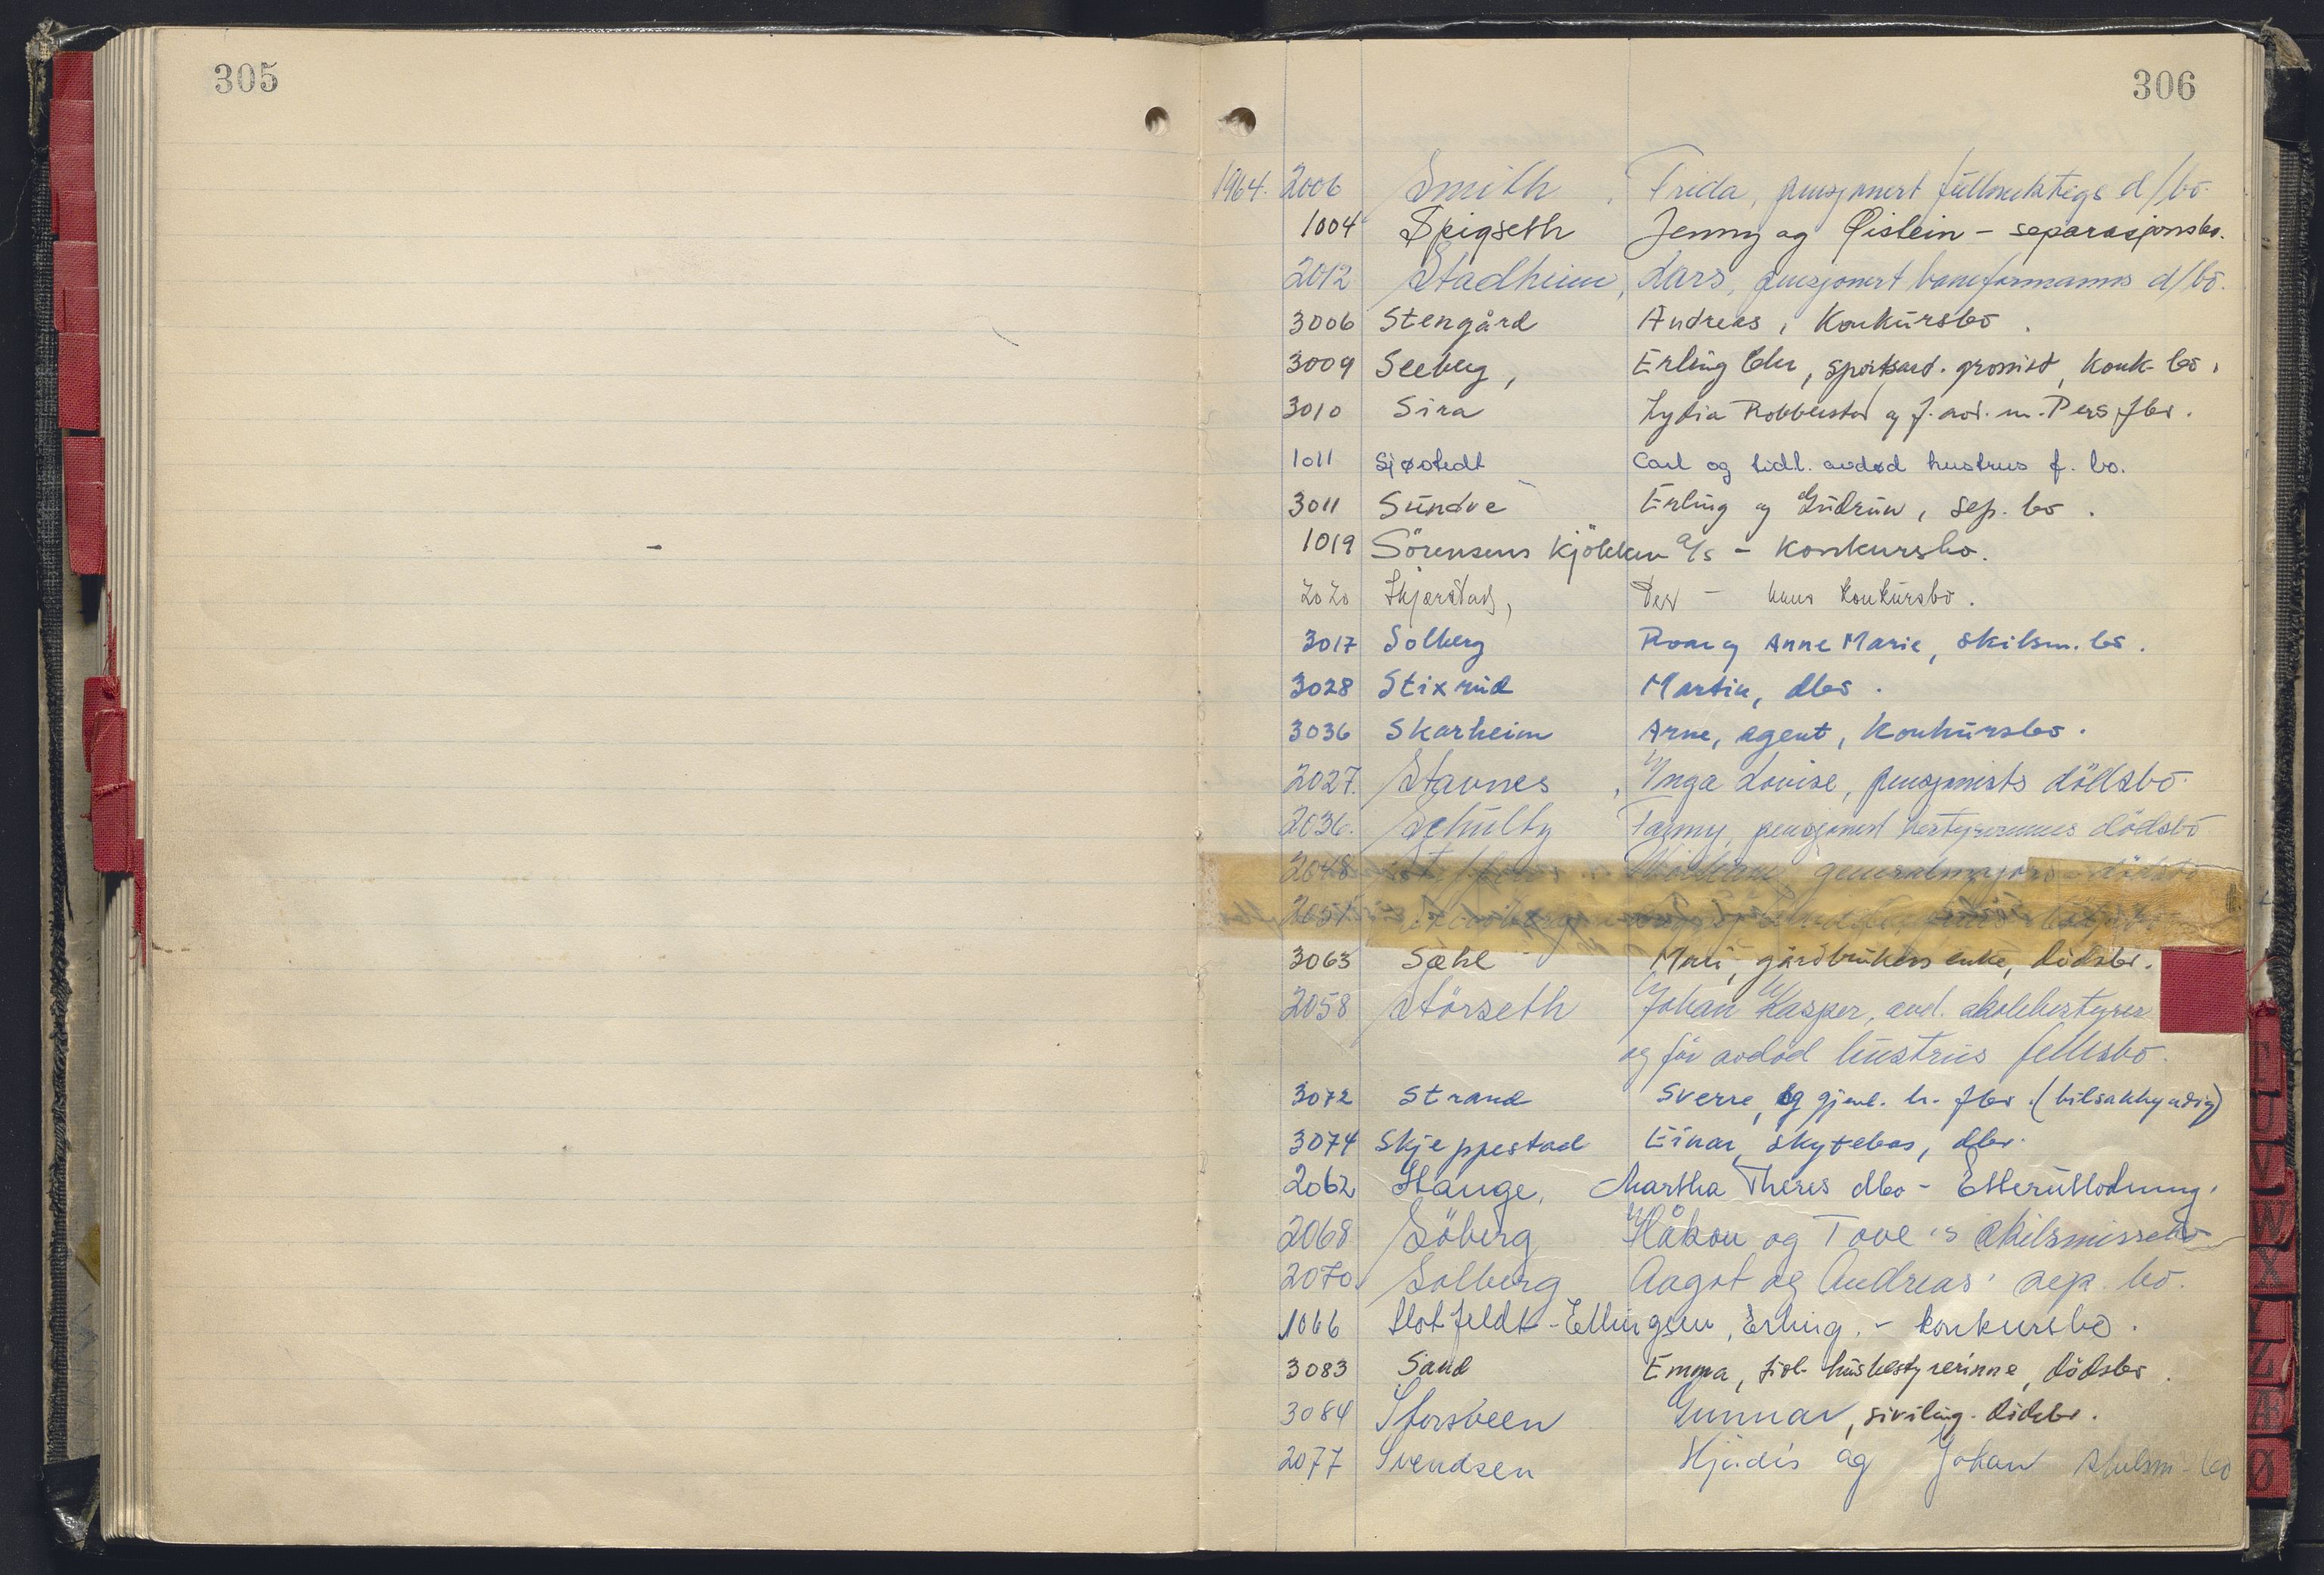 305
306
1964. 2006 Smith, Frida, pensjonert fullmektigs d/bo.
1004 Spigseth Jenny og Øistein - separasjonsbo.
2012 Stadheim, Lars, pensjonert baneformanns d/bo.
3006 Stengård Andreas, Konkursbo.
3009 Seeberg, Erling, grossist, Konk. bo.
3010 Sira Lydia Robberstad og f. avd. m. Pers fbo.
1011 Sjøstedt Carl og tidl. avdød hustrus f. bo.
3011 Sundve Erling og Gudrun, sep. bo.
1019 Sörensens Kjökken A/s - Konkursbo.
2020 Skjærstad, Per - hans konkursbo.
3017 Solberg Roar og Anne Marie, skilsm. bo.
3028 Stixrud Martin, dbo.
3036 Skarheim Arne, agent, Konkursbo.
2027. Stavnes, Inga Louise, pensjonists dödsbo.
2036. Schultz Fanny, pensjonert bestyrerinnes dödsbo
2048 generalmajors dödsbo
2051
3063 Sæhl Mari, gårdbrukers enke, dödsbo.
2058 Störseth Johan Kasper, avd. skolebestyrer
og för avdöd hustrus fellesbo.
3072 Strand Sverre, og gjenl. h. fbo. (bilsakkyndig)
3074 Skjeppestad Einar, skytebas, dbo.
2062 Stange, Martha Theres dbo - Etterutlodning.
2068 Söberg Håkon og Tove's skilsmissebo
2070. Solberg Aagot og Andreas' sep. bo.
1066 Slotfeldt-Ellingsen, Erling. - konkursbo.
3083 Sand Emma, tidl. husbestyrerinne, dödsbo.
3084 Storsveen Gunnar, siviling. dödsbo.
2077 Svendsen Hjördis og Johan skilsm. bo
U
V
W
X
Y
Z
Æ
Ø